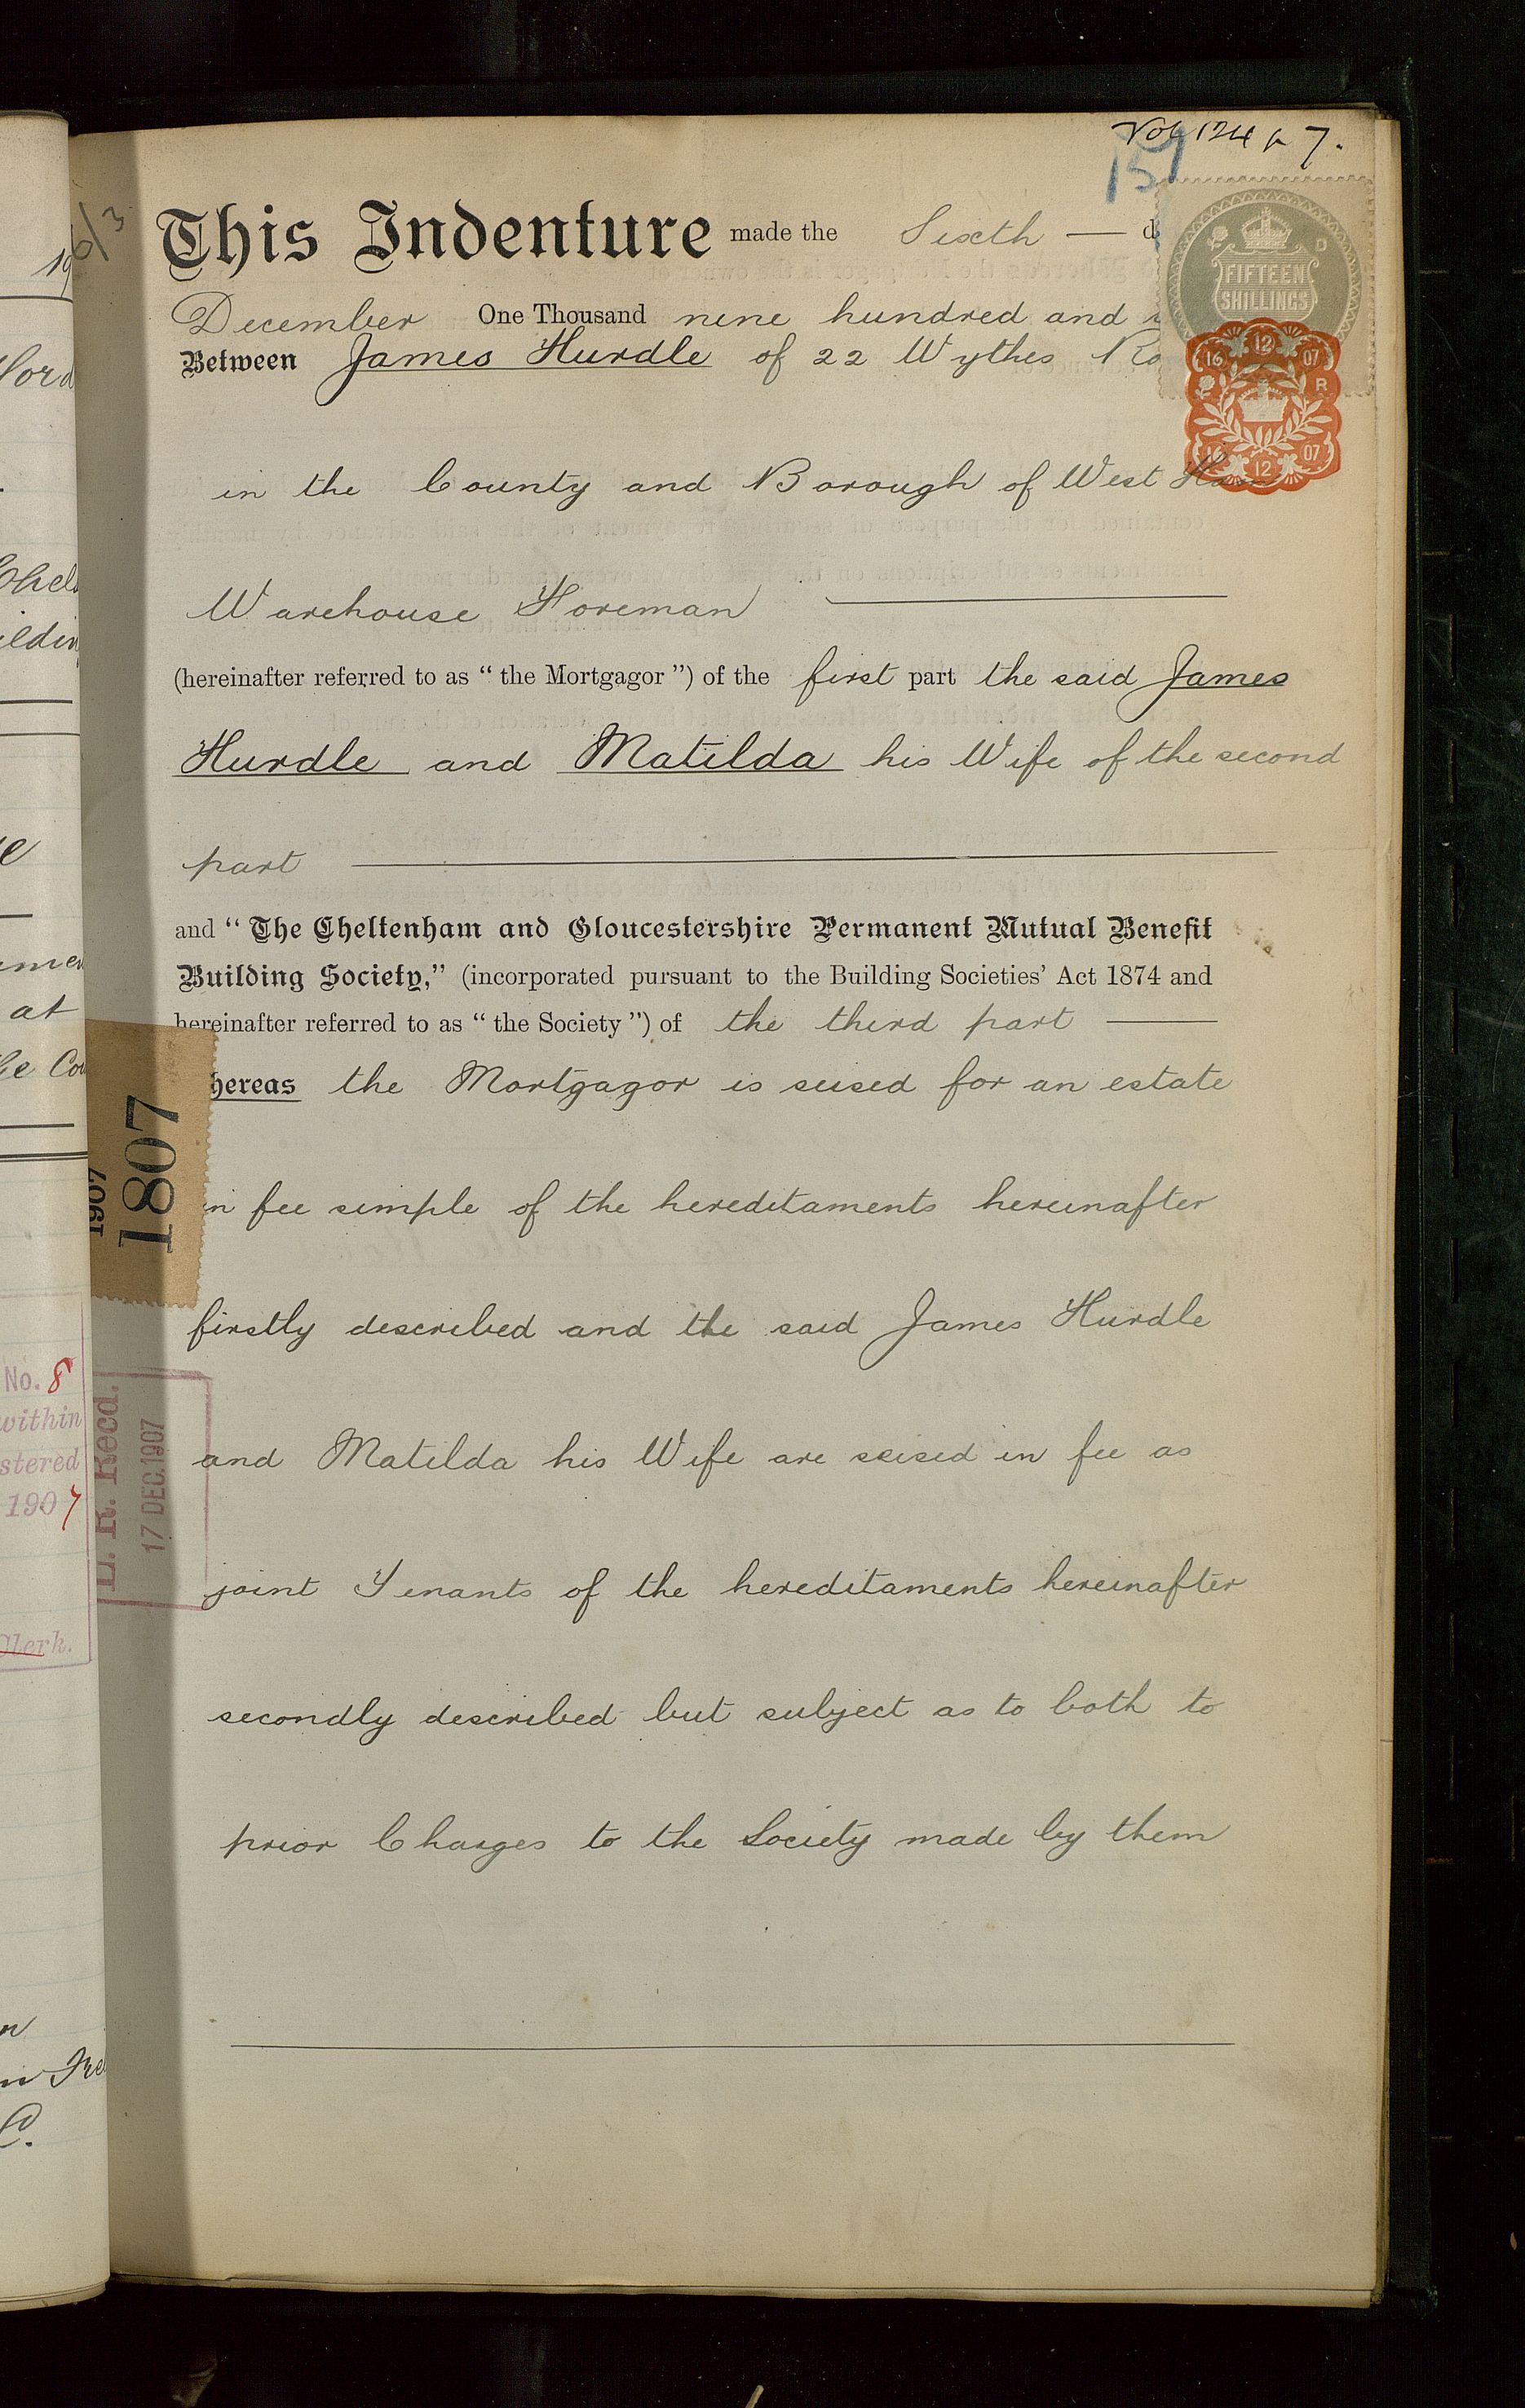 Vol 124 p 7.
159
6/3
This Indenture made the Sixth — d
FIFTEEN
SHILLINGS
December One Thousand nine hundred and
Between James Hurdle of 22 Wythes Ro
16 12 07
R
16 12 07
in the County and Borough of West Ham
Warehouse Foreman
(hereinafter referred to as “ the Mortgagor ”) of the first part the said James
Hurdle and Matilda his Wife of the second
part
and “ The Cheltenham and Gloucestershire Permanent Mutual Benefit
Building Society,” (incorporated pursuant to the Building Societies’ Act 1874 and
hereinafter referred to as “ the Society ”) of the third part
hereas the Mortgagor is seised for an estate
in fee simple of the hereditaments hereinafter
firstly described and the said James Hurdle
and Matilda his Wife are seised in fee as
joint Tenants of the hereditaments hereinafter
secondly described but subject as to both to
prior Charges to the Society made by them
1907
1807
L. R. Recd.
17 DEC.1907
at
No. 8
within
stered
1907
Clerk.